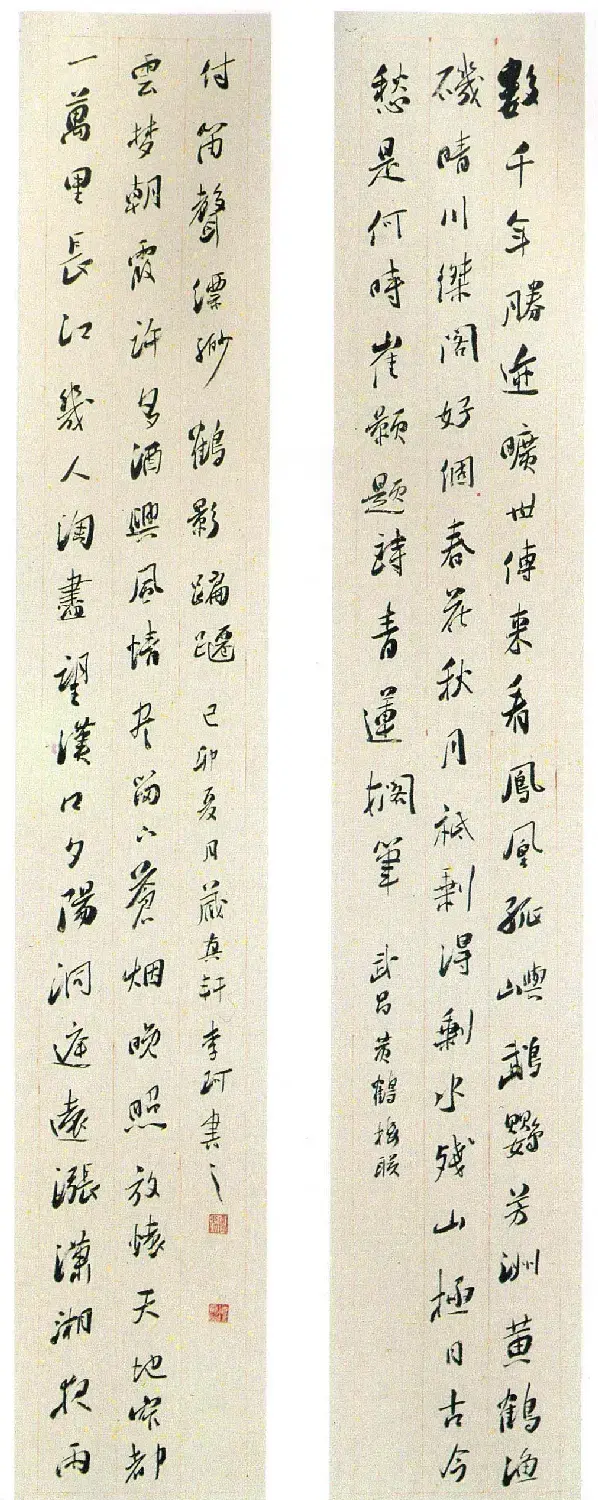 數千年勝迹曠世傳來看鳳凰孤嶼鵡鸚芳洲黄鶴漁
磯晴川傑閣好個春花秋月祇剩得剩水殘山極目古今
愁是何時崔顥題詩青蓮擱筆 武昌黄鶴樓聯
一萬里長江幾人淘盡望漢口夕陽洞庭遠漲瀟湘夜雨
雲梦朝霞許多酒興風情尽留下蒼烟晚照放懷天地窄都
付笛聲縹緲鶴影蹁躚 己卯夏月藏真軒李珂書之